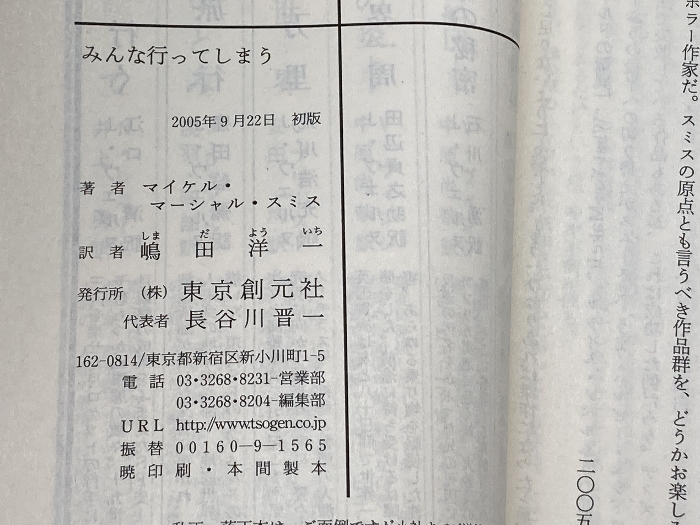 みんな行ってしまう
2005年9月22日 初版
著者 マイケル・
マーシャル・スミス
しま だ よう いち
訳者 嶋田洋一
発行所 (株) 東京創元社
代表者 長谷川晋一
162-0814/東京都新宿区新小川町1-5
電話 03・3268・8231-営業部
03・3268・8204-編集部
URL http://www.tsogen.co.jp
振替 00160-9-1565
暁印刷・本間製本
ホラー作家だ。スミスの原点とも言うべき作品群を、どうかお楽し
二〇〇五